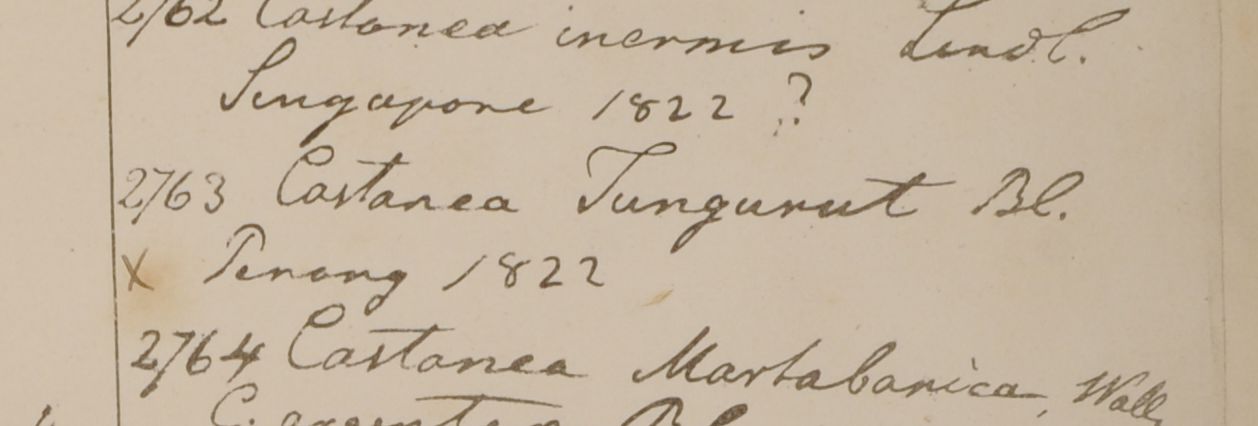 2762 Castanea inermis Lindl.
Singapore 1822 ?
2763 Castanea Tungurut Bl.
X Penang 1822
2764 Castanea Martabanica, Wall
C. argentea Bl